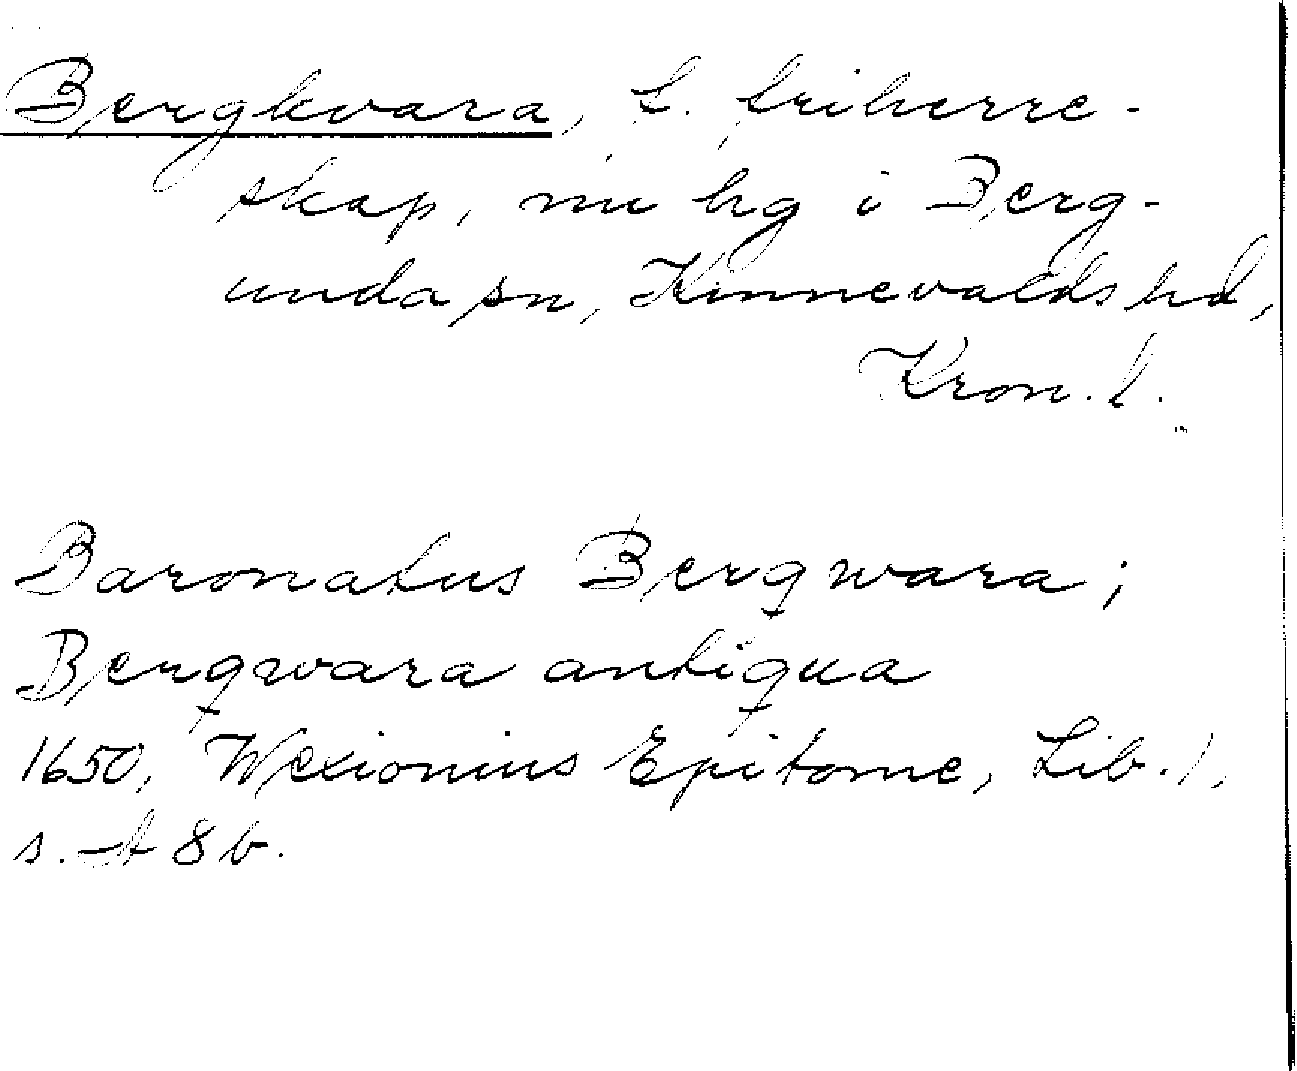 Bergkvara, f. friherre-
skap, nu hg i Berg-
unda sn, Kinnevalds hd,
Kron. l.
Baronatus Bergwara;
Bergwara antiqua
1650, Wexionius Epitome, Lib. 1,
s. A 8 b.